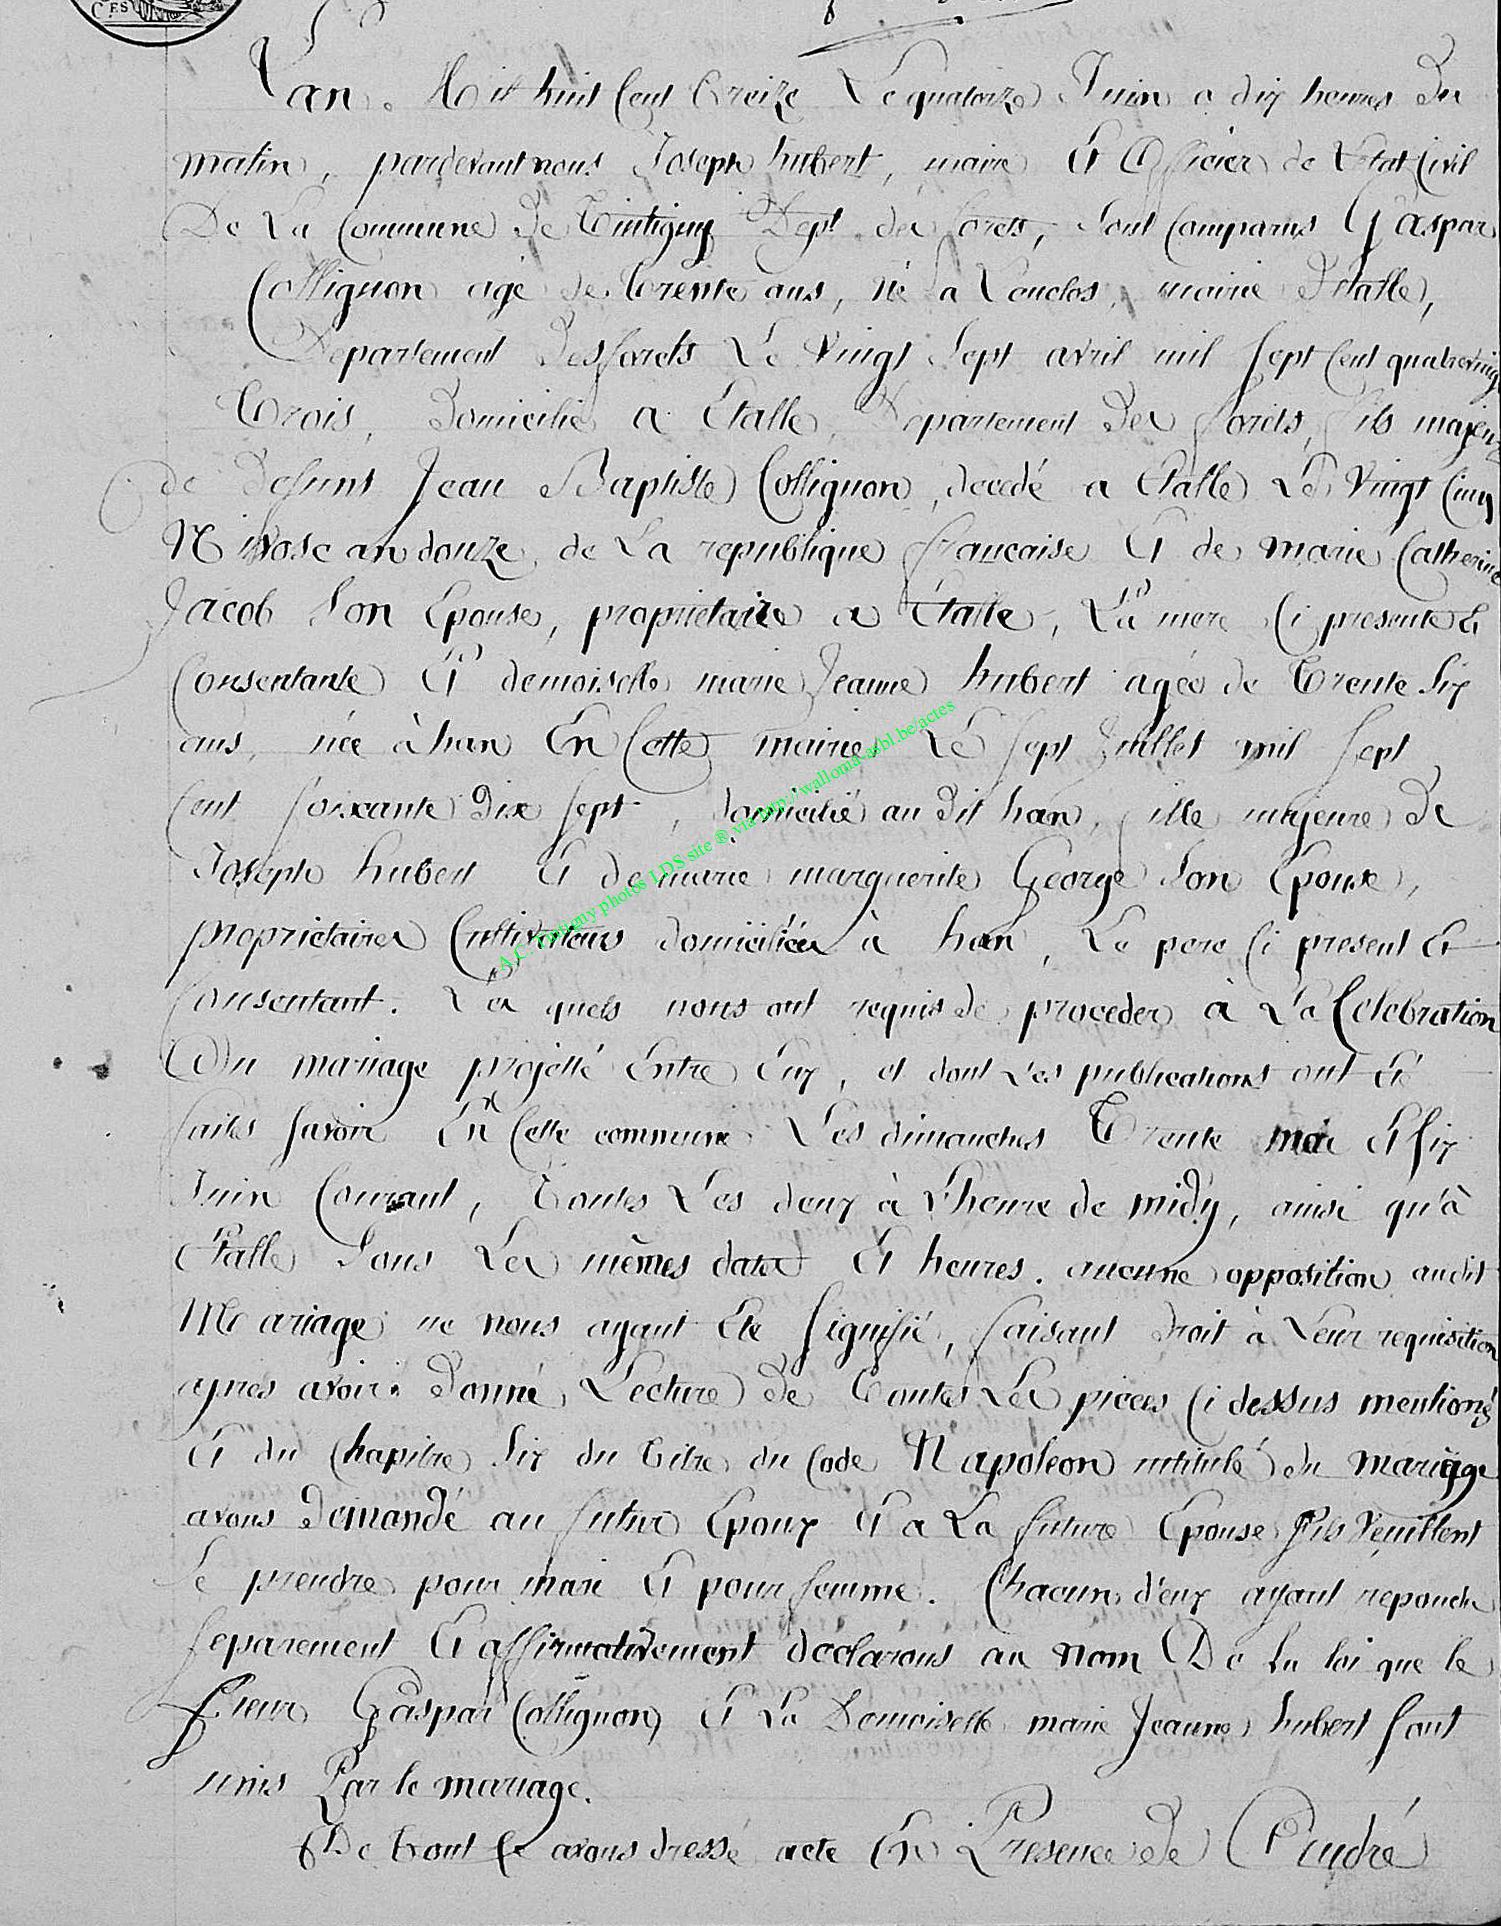 C.ES
L'an Mil huit Cent Treize Le quatorze Juin a dix heures du
matin, pardevant nous Joseph hubert, maire Et Officier de L'etat Civil
De La Commune de Tintigny Dept. des forets, Sont Comparus Gaspar
Collignon agé de Trente ans, né a Lenclos, mairie D'Etalle,
Departement Des forets Le Vingt Sept avril mil Sept Cent quatrevingt
Trois, Domicilié a Etalle, Departement Des forets, fils majeur
de Defunt Jean Baptiste Collignon, decedé a Etalle Le Vingt Cinq
Nivose an douze de La republique francaise Et de marie Catherine
Jacob Son Epouse, propriétaire a Etalle, La mere Ci presente Et
Consentante Et demoiselle marie Jeanne hubert agée de Trente Six
ans, née à han En Cette mairie Le Sept Juillet mil Sept
Cent Soixante Dix Sept, domicilié au Dit han, fille majeure De
Joseph hubert Et de marie marguerite George Son Epouse,
propriétaires Cultivateurs domiciliés à han, Le pere Ci present Et
Consentant. Les quels nous ont requis de proceder à La Celebration
Du mariage projetté Entre Eux, et dont Les publications ont Eté
faites Savoir En Cette commune Les dimanches Trente mai Et Six
Juin Courant, Toutes Les deux à L'heure de midy, ainsi qu'à
Etalle Sous Les mêmes dates Et heures. aucune opposition audit
Mariage ne nous ayant Eté Signifié, faisant droit à Leur requisition
apres avoir Donné Lecture De Toutes Les pieces Ci dessus mentionés
Et du Chapitre Six du Titre du Code Napoleon intitulé du mariage
avons Demandé au futur Epoux Et a La future Epouse S'ils Veuillent
Se prendre pour mari Et pour femme. Chacun d'eux ayant repondu
Separement Et affirmativement declarons au nom De La loi que le
Sieur Gaspar Collignon Et La Demoiselle marie Jeanne hubert Sont
unis Par le mariage.
De Tout Ce avons dressé acte En Presence de André
A.C. Tintigny photos LDS site ® via http://walloma-asbl.be/actes